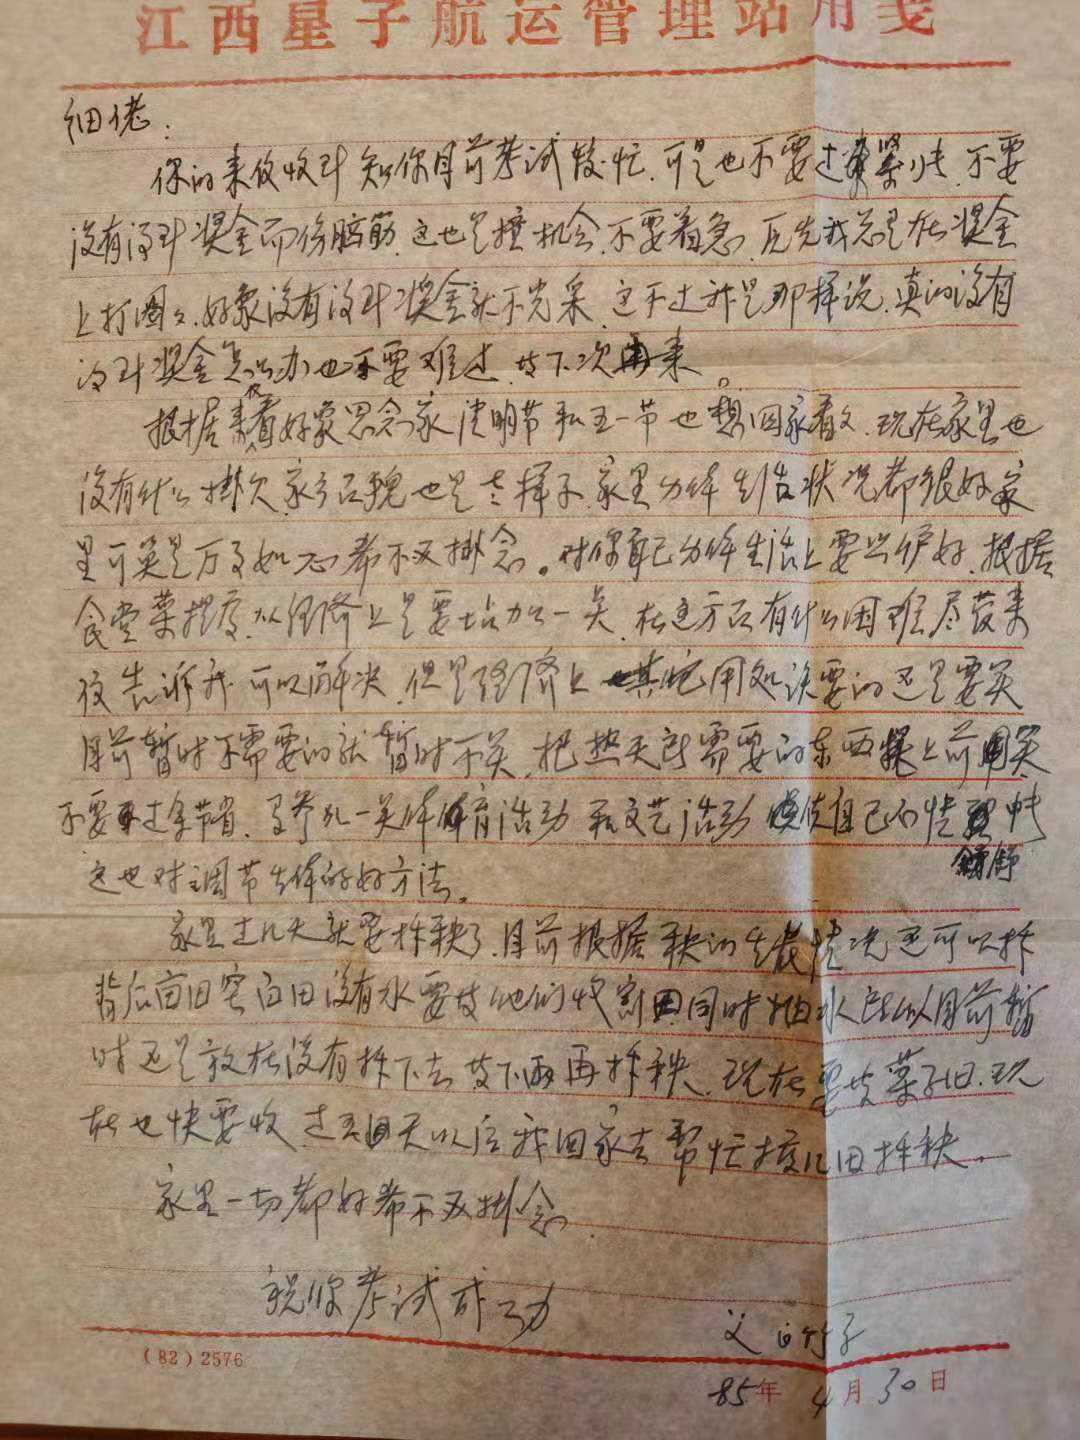 江西星子航运管理站用笺
细佬：
你的来信收到 知你目前考试较忙，可是也不要过紧张，不要
没有得到奖金而伤脑筋，这也是撞机会，不要着急，原先我总是在奖金
上打圈圈，好象没有得到奖金就不光采，这不过我是那样说，真的没有
得到奖金怎么办也不要难过，等下次再来。
根据来信看好象思念家，清明节和五一节也想回家看看，现在家里也
没有什么挂欠，家乡面貌也是老样子，家里身体生活状况都很好，家
里可算是万事如意希不必挂念。对你自己身体生活上要照护好，根据
食堂菜 经济上是要增加一点，在这方面有什么困难尽管来
信告诉我可以解决，但是经济上其它用处该要的还是要买
目前暂时不需要的就暂时不买，把热天所需要的东西提上前买
不要过余节省，参加一点体育活动和文艺活动 使自己 愉快
舒
这也对调节身体的好方法。
家里过几天就要插秧了，目前根据秧的生长情况还可以插
背后亩田 亩田没有水要等他们 同时抽水 所以目前暂
时还是放在没有插下去等下雨再插秧，现在要等菜子田，现
在也快要收，过 天以后我回家去帮忙 几田插秧。
家里一切都好希不必挂念
祝你考试成功
父 竹子
(82) 2576
85年 4月 30日